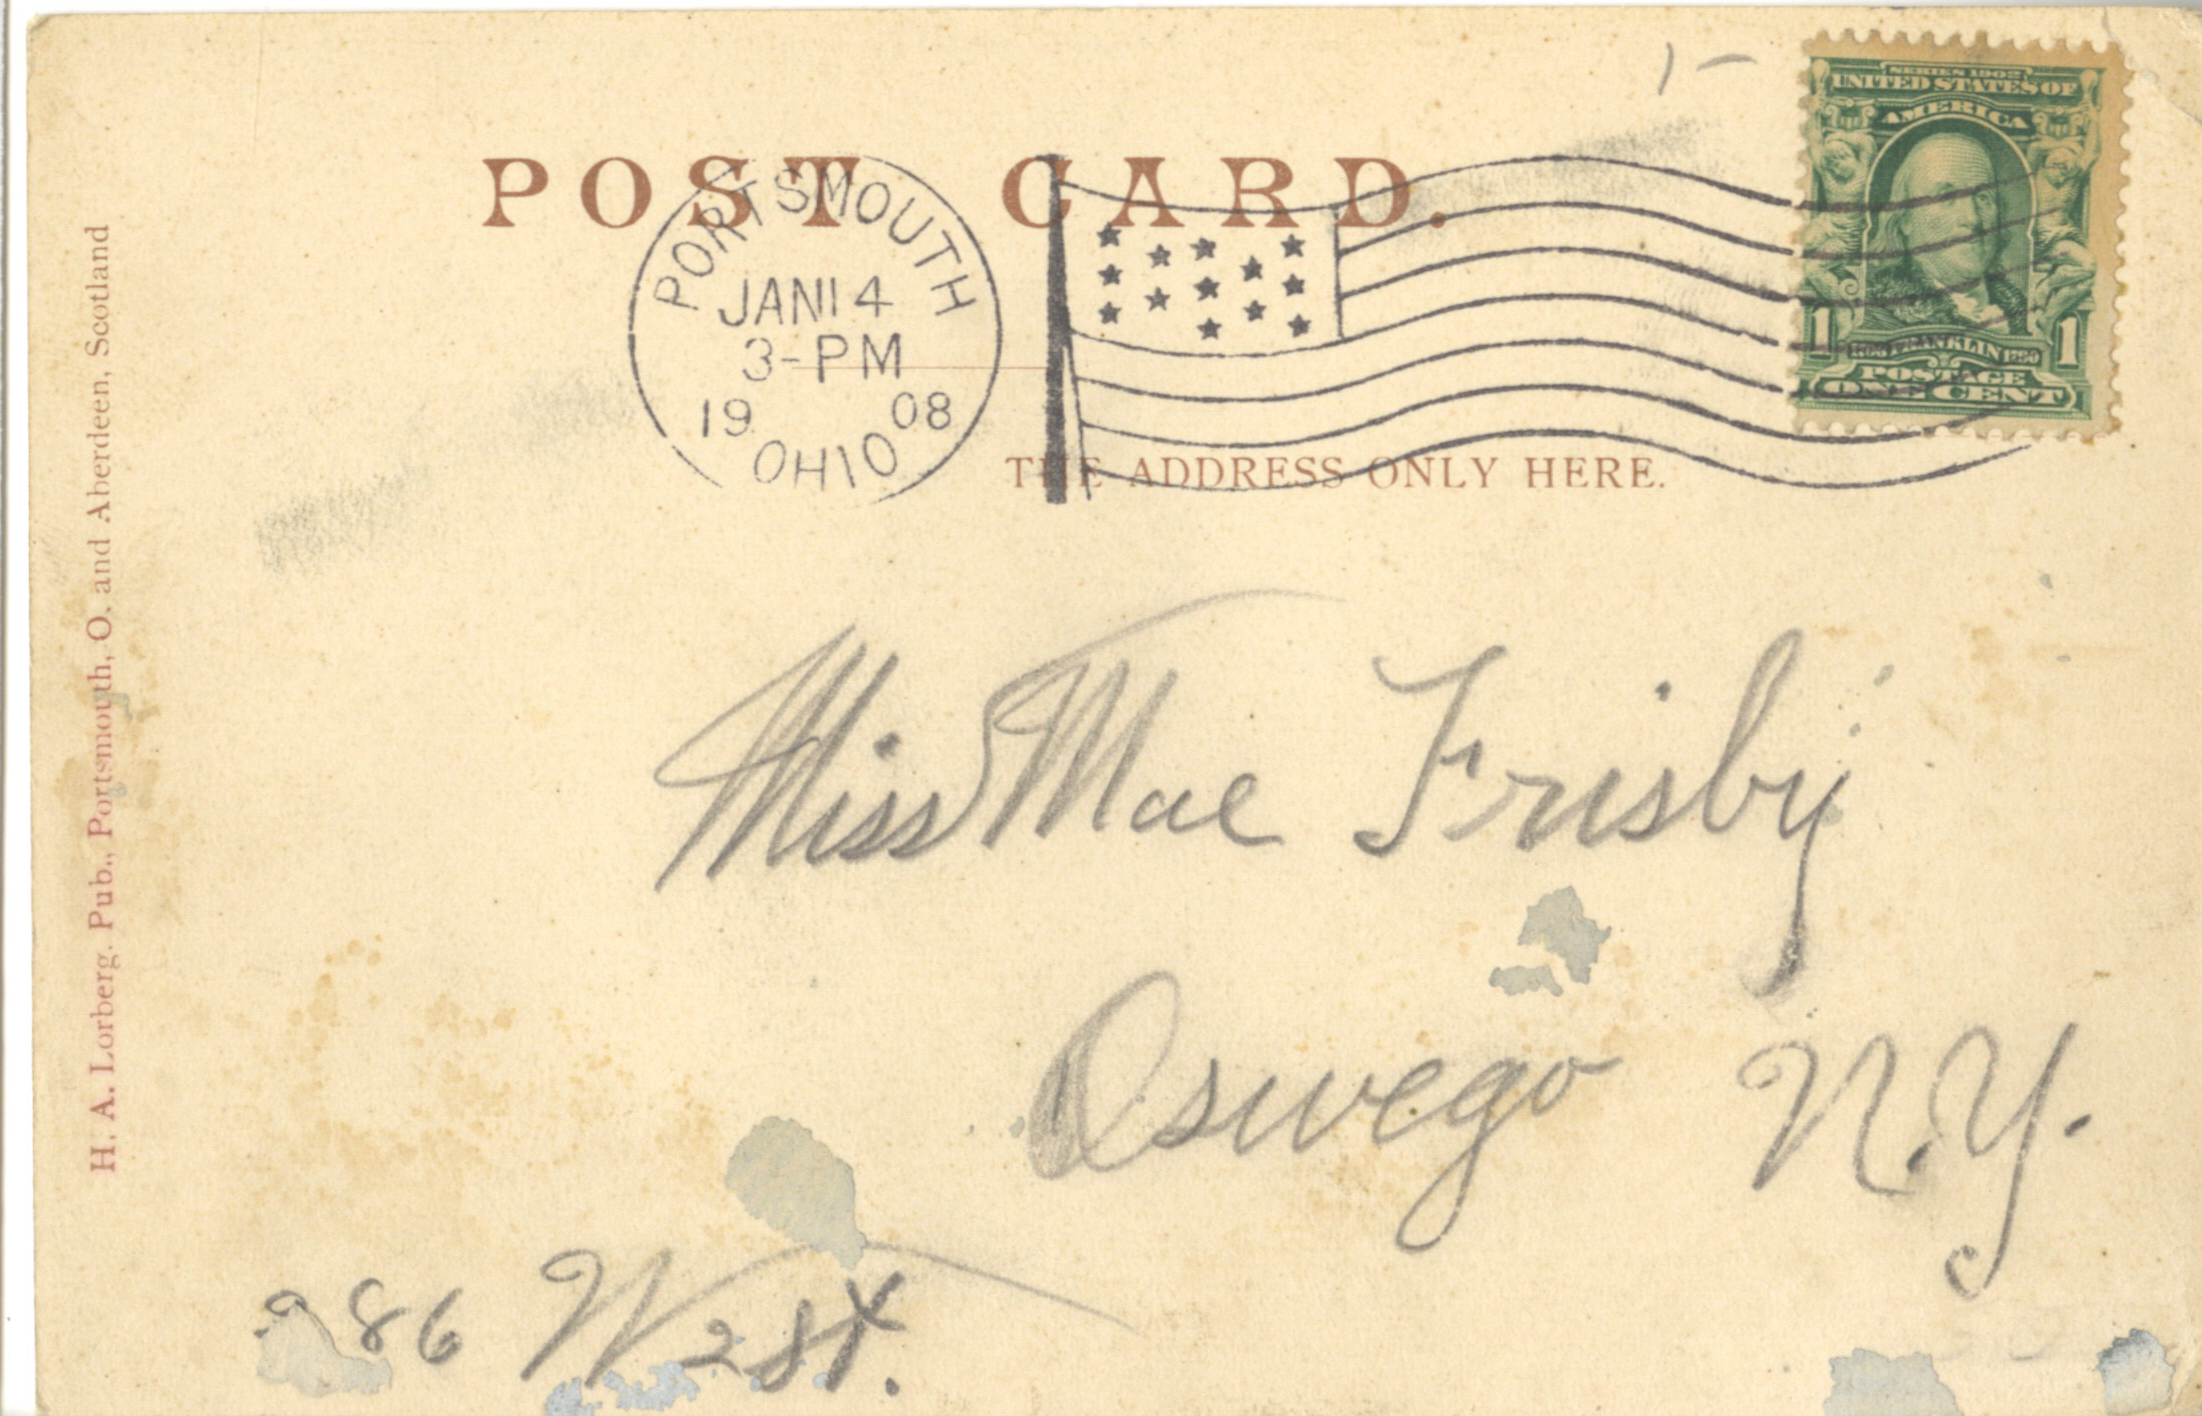 SERIES 1902
UNITED STATES OF
AMERICA
1 FRANKLIN 1
POSTAGE
ONE CENT
POST CARD.
PORTSMOUTH
JAN 14
3-PM
19 08
OHIO
THE ADDRESS ONLY HERE.
H. A. Lorberg. Pub., Portsmouth, O. and Aberdeen, Scotland
Miss Mae Frisby
Oswego N.Y.
286 W 2 St.